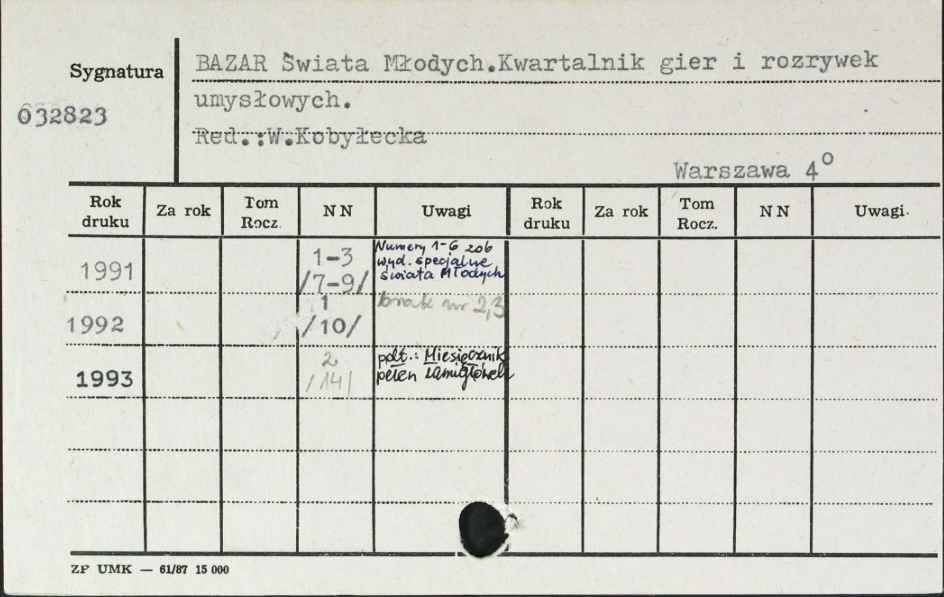 BAZAR Świata Młodych.Kwartalnik gier i rozrywek
Sygnatura
umysłowych.
032823
Red.:W.Kobyłecka
Warszawa 4°
Rok druku Za rok Tom Rocz. NN Uwagi Rok druku Za rok Tom Rocz. NN Uwagi
1991 1-3 /7-9/ Numery 1-6 zob wyd. specjalne Świata Młodych
1992 1 /10/ brak nr 2,3
1993 2 /14/ pdt.: Miesięcznik pełen łamigłówek
ZP UMK — 61/87 15 000